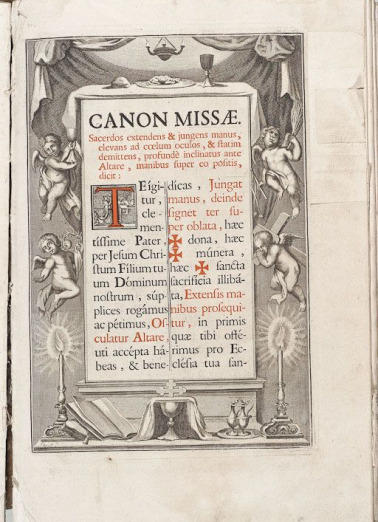 CANON MISSÆ.
Sacerdos extendens & jungens manus,
elevans ad cœlum oculos, & statim
demittens, profundè inclinatus ante
Altare, manibus super eo positis,
dicit:
TEígi-
tur,
cle-
men-
tíssime Pater,
per Jesum Chri-
stum Fílium tu-
um Dóminum
nostrum, súp-
plices rogámus
ac pétimus, Os-
culatur Altare,
uti accépta há-
beas, & bene-
dicas, Jungat
manus, deinde
signet ter su-
per oblata, hæc
✠ dona, hæc
✠ múnera,
hæc ✠ sancta
sacrifícia illibá-
ta, Extensis ma-
nibus prosequi-
tur, in primis
quæ tibi offé-
rimus pro Ec-
clésia tua san-